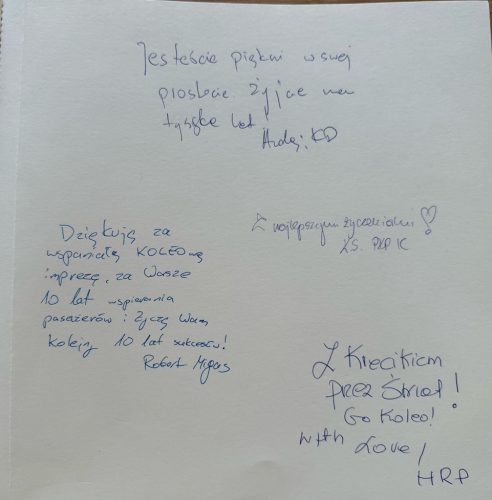 Jesteście piękni w swej
prostocie. Żyjcie nam
lat!
KD
Z najlepszymi życzeniami
ŁS. PKP IC
Dziękuję za
wspaniałą KOLEOwą
imprezę, za Wasze
10 lat wspierania
pasażerów i życzę Wam
kolejny 10 lat sukcesów!
Robert Migas
Z Krecikiem
przez Świat!
Go Koleo!
With Love,
HRP